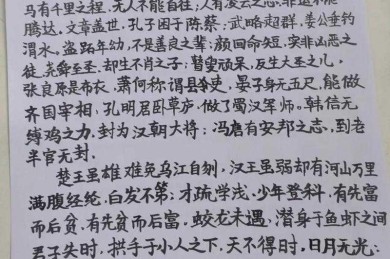 马有千里之程，无人不能自往；人有凌云之志，非运不能
腾达。文章盖世，孔子困于陈蔡；武略超群，姜公垂钓
渭水。盗跖年幼，不是善良之辈；颜回命短，实非凶恶之
徒。尧舜至圣，却生不肖之子；瞽叟顽呆，反生大圣儿。
张良原是布衣，萧何称谓县吏。晏子身无五尺，能做
齐国宰相；孔明居卧草庐，做了蜀汉军师。韩信无
缚鸡之力，封为汉朝大将；冯唐有安邦之志，到老
半官无封。
楚王虽雄难免乌江自刎，汉王虽弱却有河山万里
满腹经纶，白发不第；才疏学浅，少年登科，有先富
而后贫，有先贫而后富，蛟龙未遇，潜身于鱼虾之间
君子失时，拱手于小人之下，天不得时，日月无光；